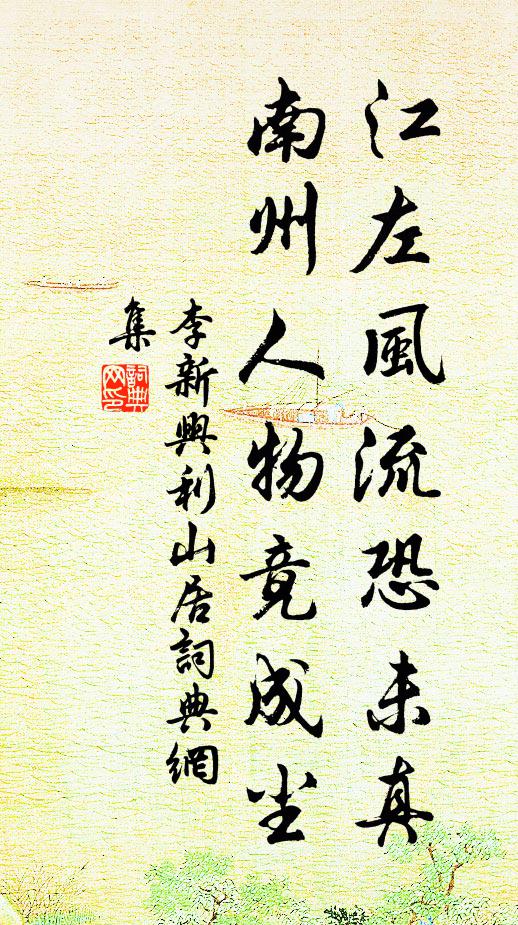 江左風流恐未真
南州人物竟成尘
李新興利山居詞典網
集
詞典
网印